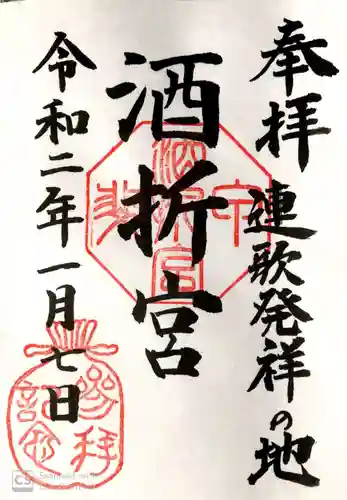 奉拝
連歌発祥の地
酒折宮
令和二年一月七日
参拝
記念
CS